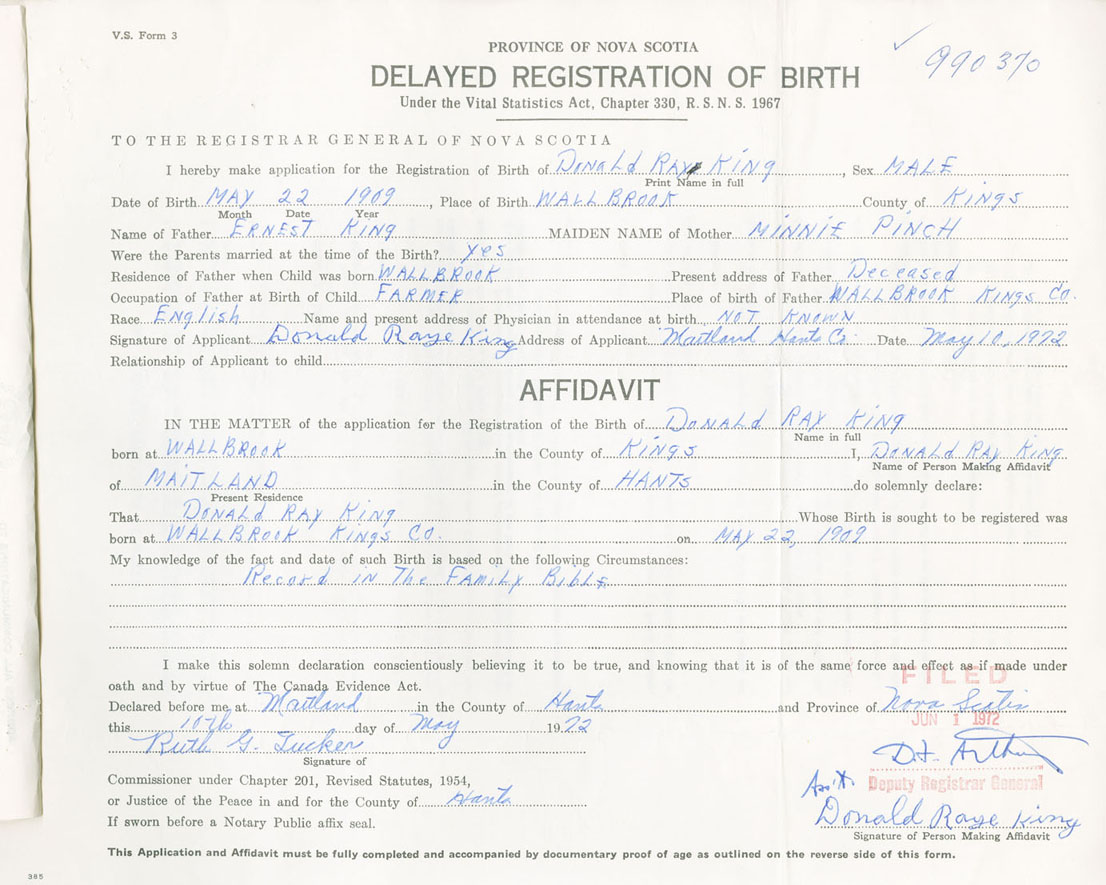 V.S. Form 3
990370
PROVINCE OF NOVA SCOTIA
DELAYED REGISTRATION OF BIRTH
Under the Vital Statistics Act, Chapter 330, R. S. N. S. 1967
TO THE REGISTRAR GENERAL OF NOVA SCOTIA
I hereby make application for the Registration of Birth of Donald Ray King, Sex MALE
Print Name in full
Date of Birth MAY 22 1909, Place of Birth WALLBROOK County of Kings
Month Date Year
Name of Father ERNEST King MAIDEN NAME of Mother MINNIE PINCH
Were the Parents married at the time of the Birth? yes
Residence of Father when Child was born WALLBROOK Present address of Father Deceased
Occupation of Father at Birth of Child FARMER Place of birth of Father WALLBROOK Kings Co.
Race English Name and present address of Physician in attendance at birth NOT KNOWN
Signature of Applicant Donald Raye King Address of Applicant Maitland Hants Co. Date May 10, 1972
Relationship of Applicant to child
AFFIDAVIT
IN THE MATTER of the application for the Registration of the Birth of Donald Ray King
Name in full
born at WALLBROOK in the County of Kings I, Donald Ray King
Name of Person Making Affidavit
of MAITLAND in the County of HANTS do solemnly declare:
Present Residence
That Donald Ray King Whose Birth is sought to be registered was
born at WALLBROOK Kings Co. on MAY 22, 1909
My knowledge of the fact and date of such Birth is based on the following Circumstances:
Record in The Family Bible
I make this solemn declaration conscientiously believing it to be true, and knowing that it is of the same force and effect as if made under
oath and by virtue of The Canada Evidence Act.
FILED
Declared before me at Maitland in the County of Hants and Province of Nova Scotia
JUN 1 1972
this 10th day of May 1972
Ruth G. Tucker
Signature of
D.F. Arthur
Commissioner under Chapter 201, Revised Statutes, 1954,
Ass't. Deputy Registrar General
or Justice of the Peace in and for the County of Hants
Donald Raye King
If sworn before a Notary Public affix seal.
Signature of Person Making Affidavit
This Application and Affidavit must be fully completed and accompanied by documentary proof of age as outlined on the reverse side of this form.
385